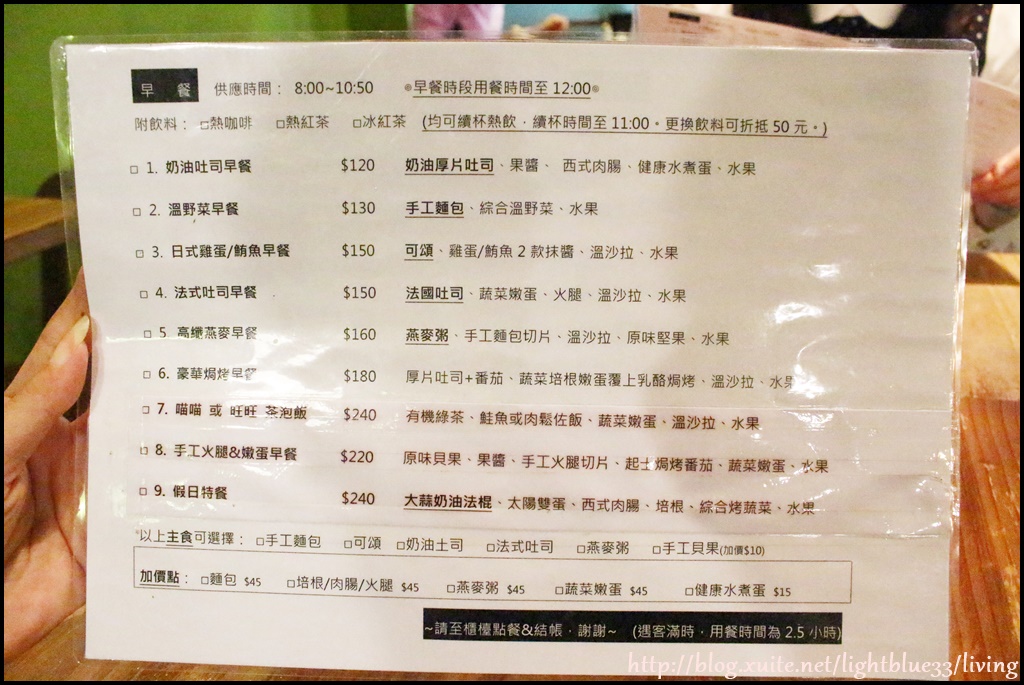 早 餐 供應時間： 8:00~10:50 ※早餐時段用餐時間至 12:00※
附飲料： □熱咖啡 □熱紅茶 □冰紅茶 (均可續杯熱飲，續杯時間至 11:00。更換飲料可折抵 50 元。)
□ 1. 奶油吐司早餐 $120 奶油厚片吐司、果醬、 西式肉腸、健康水煮蛋、水果
□ 2. 溫野菜早餐 $130 手工麵包、綜合溫野菜、水果
□ 3. 日式雞蛋/鮪魚早餐 $150 可頌、雞蛋/鮪魚 2 款抹醬、溫沙拉、水果
□ 4. 法式吐司早餐 $150 法國吐司、蔬菜嫩蛋、火腿、溫沙拉、水果
□ 5. 高纖燕麥早餐 $160 燕麥粥、手工麵包切片、溫沙拉、原味堅果、水果
□ 6. 豪華焗烤早餐 $180 厚片吐司+番茄、蔬菜培根嫩蛋覆上乳酪焗烤、溫沙拉、水果
□ 7. 喵喵 或 旺旺 茶泡飯 $240 有機綠茶、鮭魚或肉鬆佐飯、蔬菜嫩蛋、溫沙拉、水果
□ 8. 手工火腿&嫩蛋早餐 $220 原味貝果、果醬、手工火腿切片、起士焗烤番茄、蔬菜嫩蛋、水果
□ 9. 假日特餐 $240 大蒜奶油法棍、太陽雙蛋、西式肉腸、培根、綜合烤蔬菜、水果
※以上主食可選擇： □手工麵包 □可頌 □奶油土司 □法式吐司 □燕麥粥 □手工貝果(加價$10)
加價點： □麵包 $45 □培根/肉腸/火腿 $45 □燕麥粥 $45 □蔬菜嫩蛋 $45 □健康水煮蛋 $15
~請至櫃檯點餐&結帳．謝謝~ (遇客滿時，用餐時間為 2.5 小時)
http://blog.xuite.net/lightblue33/living